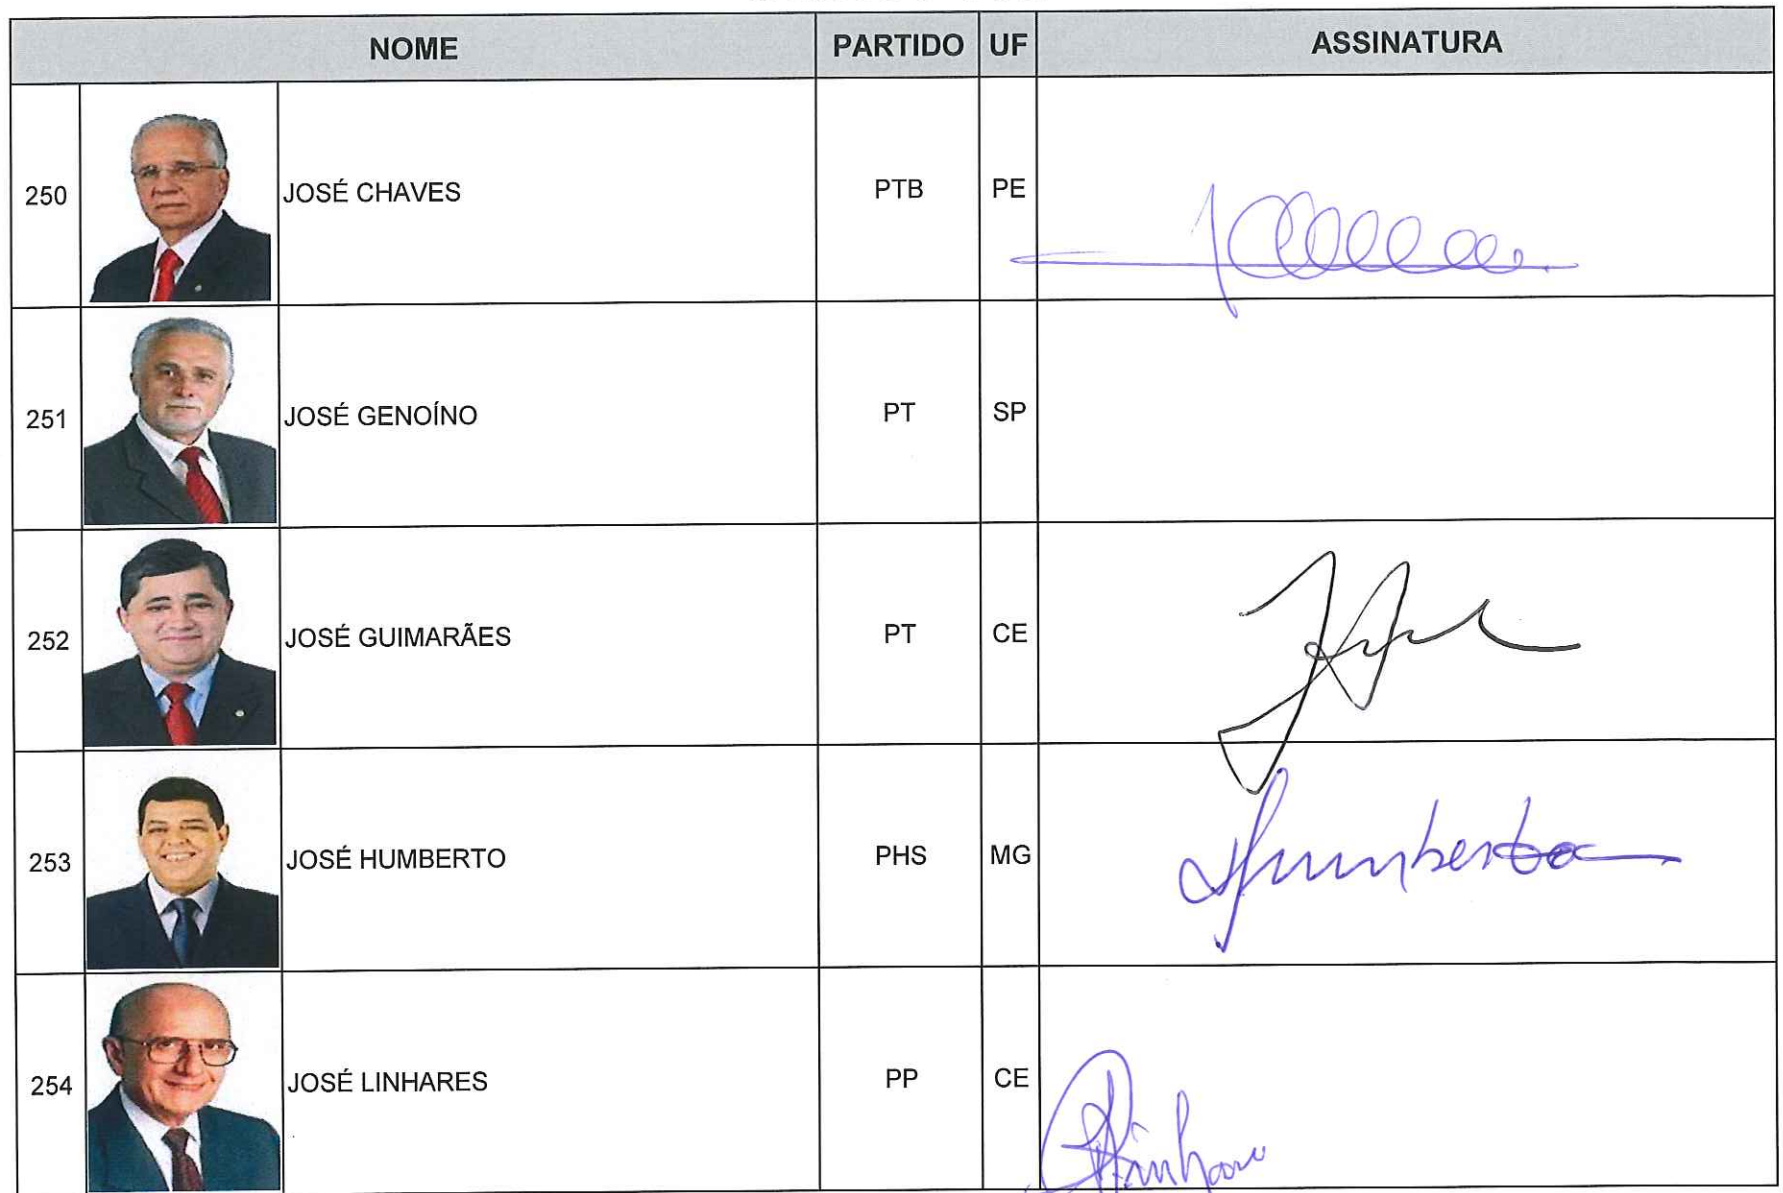 NOME PARTIDO UF ASSINATURA
250 JOSÉ CHAVES PTB PE
251 JOSÉ GENOÍNO PT SP
252 JOSÉ GUIMARÃES PT CE
253 JOSÉ HUMBERTO PHS MG Humberto
254 JOSÉ LINHARES PP CE